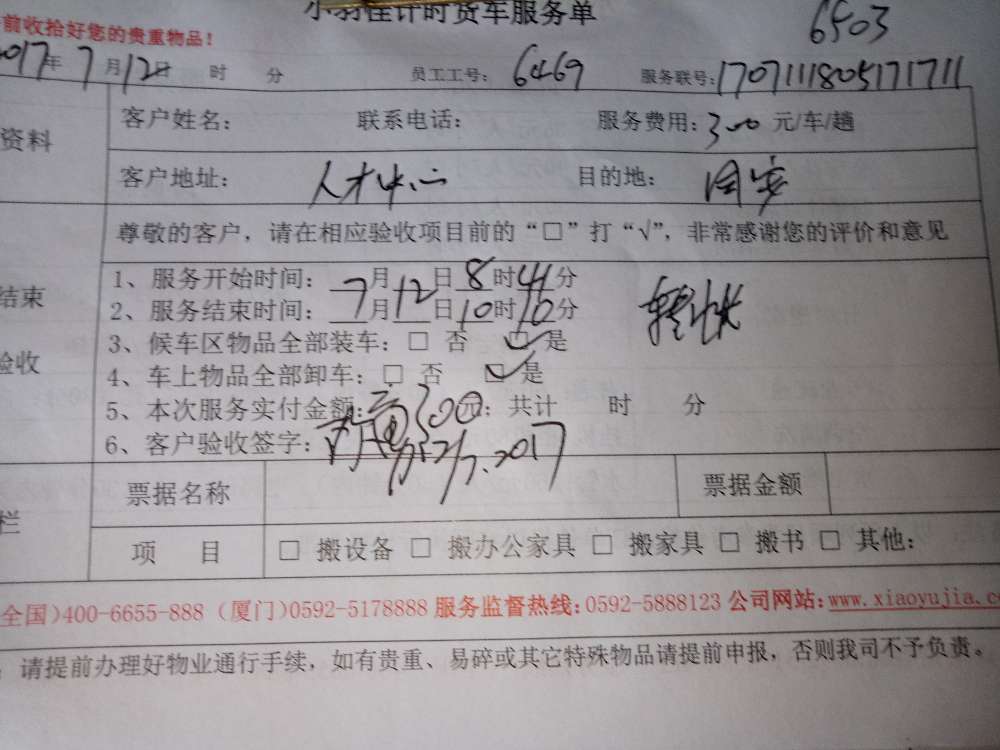 计时货车服务单
6503
前收拾好您的贵重物品！
2017年7月12日 时 分 员工工号：6469 服务联号：1707111805171711
资料
客户姓名： 联系电话： 服务费用：300元/车/趟
客户地址：人才中心 目的地：同安
尊敬的客户，请在相应验收项目前的“□”打“√”，非常感谢您的评价和意见
结束
验收
1、服务开始时间：7月12日8时41分
2、服务结束时间：7月12日10时10分
3、候车区物品全部装车：□ 否 ☑ 是
4、车上物品全部卸车：□ 否 ☑ 是
5、本次服务实付金额：300元：共计 时 分
6、客户验收签字：12/7.2017
栏
票据名称 票据金额
项 目 □ 搬设备 □ 搬办公家具 □ 搬家具 □ 搬书 □ 其他：
全国)400-6655-888 (厦门)0592-5178888 服务监督热线：0592-5888123 公司网站：www.xiaoyujia.c
：请提前办理好物业通行手续，如有贵重、易碎或其它特殊物品请提前申报，否则我司不予负责。